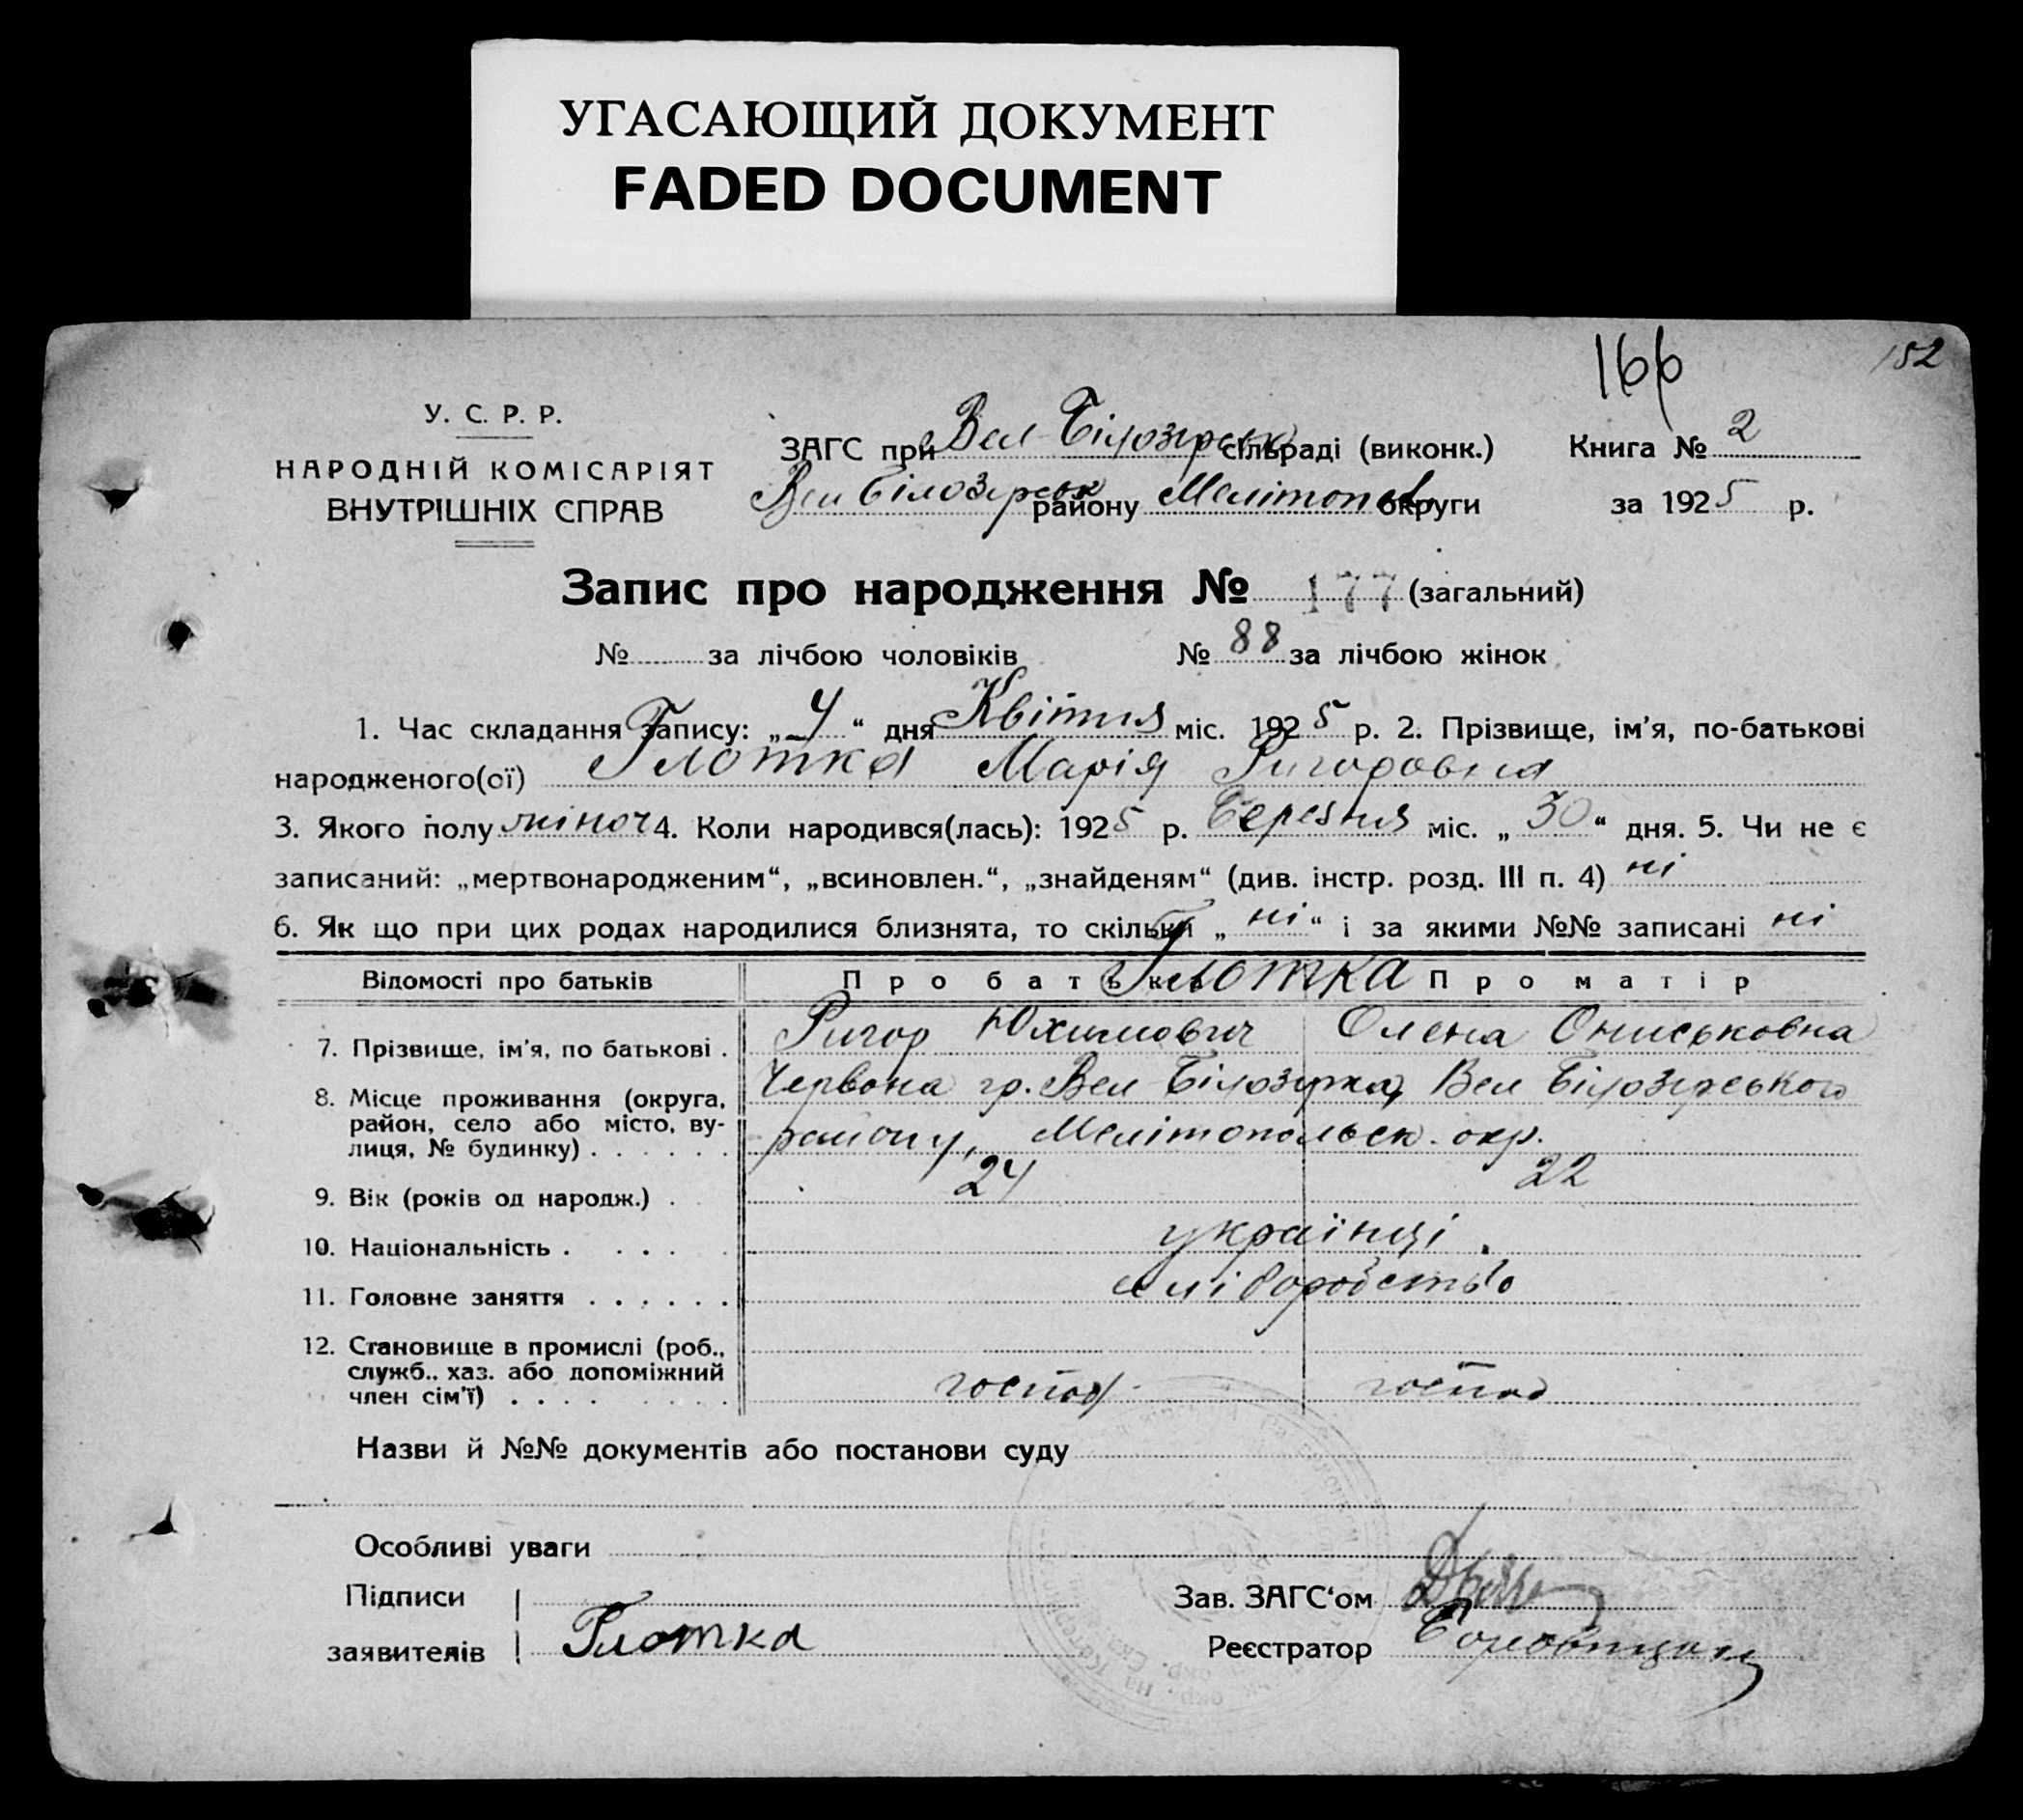 УГАСАЮЩИЙ ДОКУМЕНТ
FADED DOCUMENT
166
152
У. С. Р. Р.
НАРОДНІЙ КОМІСАРІЯТ
ВНУТРІШНІХ СПРАВ
ЗАГС при Вел-Білозірськ сільраді (виконк.)
Книга № 2
Вел Білозірськ району Мелітоп округи
за 1925 р.
Запис про народження № 177 (загальний)
№ за лічбою чоловіків № 88 за лічбою жінок
1. Час складання запису: „4“ дня Квітня міс. 1925 р. 2. Прізвище, ім'я, по-батькові
народженого(ої) Глотка Марія Ригоровна
3. Якого полу жіноч 4. Коли народився(лась): 1925 р. Березня міс. „30“ дня. 5. Чи не є
записаний: „мертвонародженим“, „всиновлен.“, „знайденям“ (див. інстр. розд. III п. 4) ні
6. Як що при цих родах народилися близнята, то скільки „ні“ і за якими №№ записані ні
Відомості про батьків Про батька Про матір
Глотка
7. Прізвище, ім'я, по батькові . Ригор Юхимович Олена Ониськовна
8. Місце проживання (округа, Червона гр. Вел Білозірка, Вел Білозірського
район, село або місто, ву-
лиця, № будинку) . . . . . . району, Мелітопольск. окр.
9. Вік (років од народж.) . 24 22
10. Національність . . . . українці.
11. Головне заняття . . . . . . хліборобство
12. Становище в промислі (роб.,
служб., хаз. або допоміжний
член сім'ї) . . . . господ. господ
Назви й №№ документів або постанови суду
Особливі уваги
Підписи
Зав. ЗАГС'ом
заявителів Глотка
Реєстратор